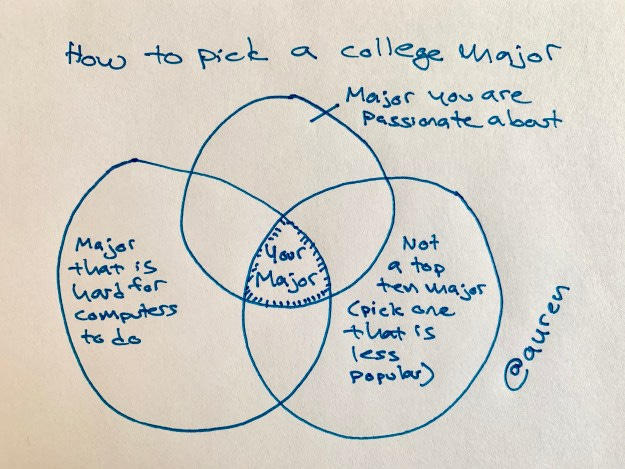 How to pick a college major
Major you are
passionate about
Major
that is
hard for
computers
to do
Your
Major
Not
a top
ten major
(pick one
that is
less
popular)
@auren